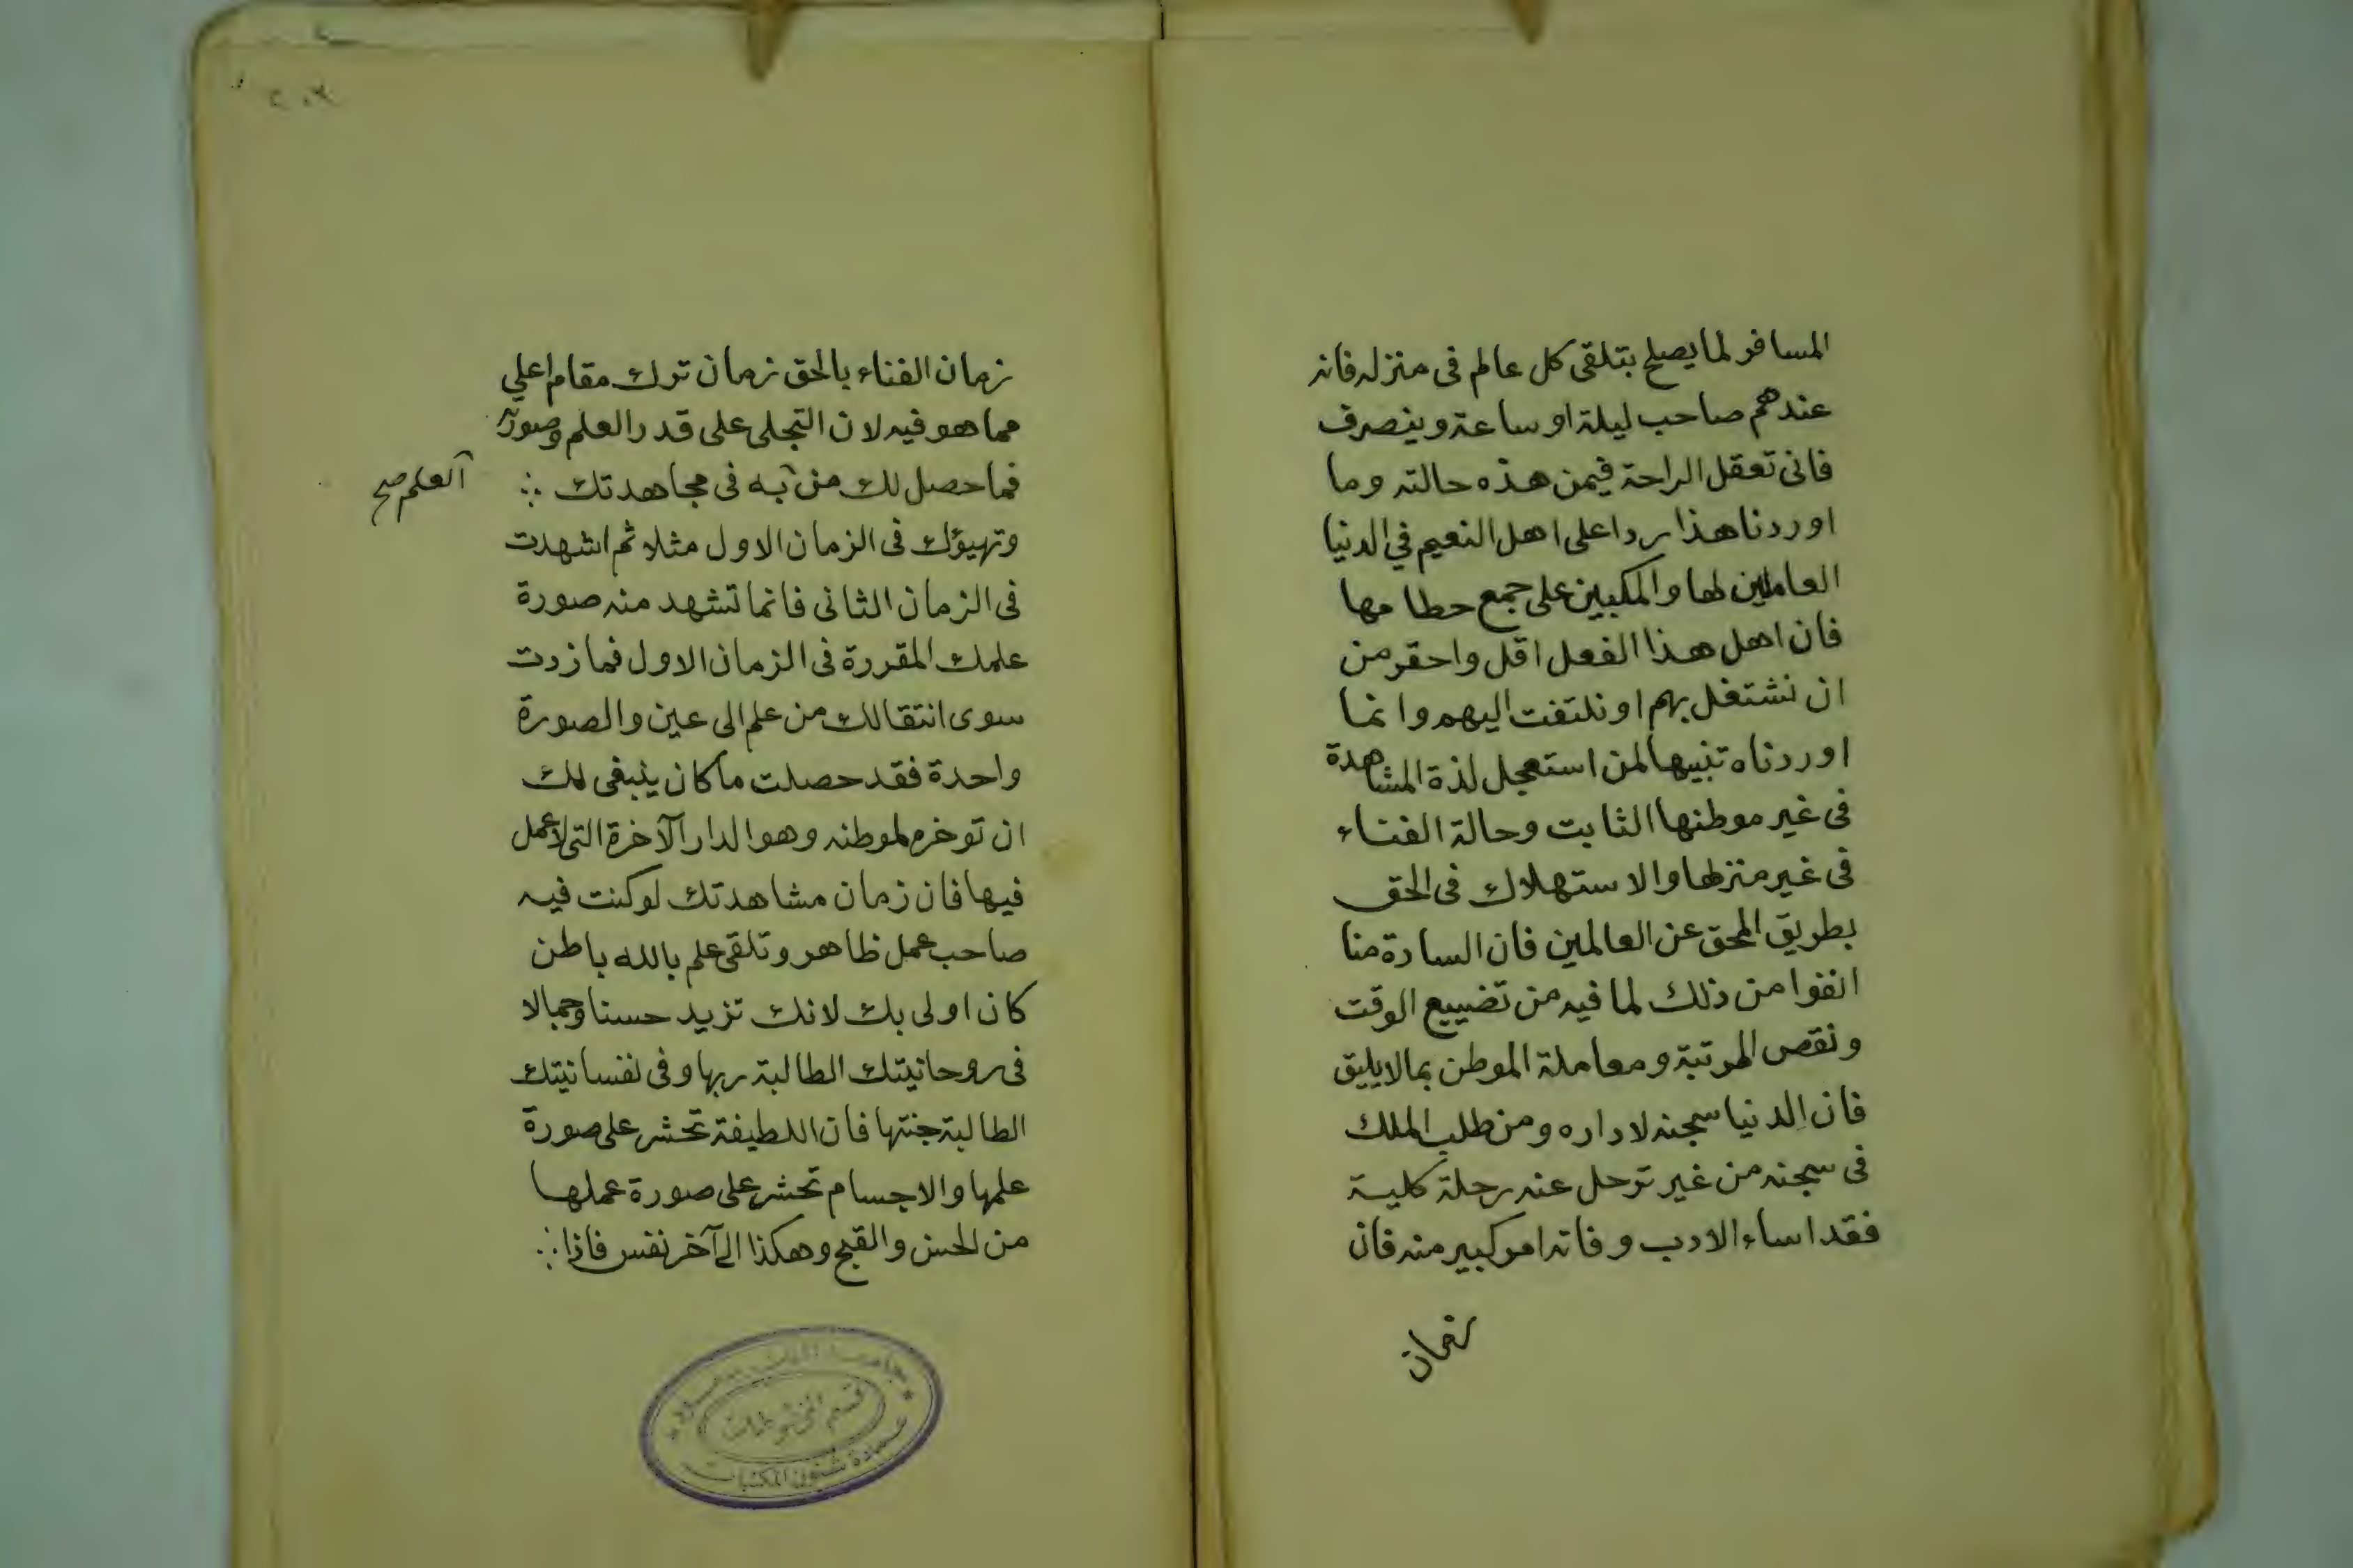 المسافر لما يصلح بتلقى كل عالم فى منزله فانه
عندهم صاحب ليلة او ساعة وينصرف
فانى تعقل الراحة فيمن هذه حالته وما
اوردنا هذا ردا على اهل النعيم في الدنيا
العاملين لها والمكبين على جمع حطامها
فان اهل هذا الفعل اقل واحقر من
ان نشتغل بهم او نلتفت اليهم وانما
اوردناه تنبيها لمن استعجل لذة المشاهدة
فى غير موطنها الثابت وحالة الفناء
فى غير منزلها والاستهلاك فى الحق
بطريق المحق عن العالمين فان السادة منا
انفوا من ذلك لما فيه من تضييع الوقت
ونقص المرتبة ومعاملة الموطن بمالايليق
فان الدنيا سجنه لا داره ومن طلب الملك
فى سجنه من غير ترحل عنه رحلة كلية
فقد اساء الادب وفاته امر كبير منه فان
زمان
زمان الفناء بالحق زمان ترك مقام اعلي
مما هو فيه لان التجلى على قدر العلم وصورة
فما حصل لك من به فى مجاهدتك
العلم صح
وتهيؤك فى الزمان الاول مثلا ثم اشهدت
فى الزمان الثانى فانما تشهد منه صورة
علمك المقررة فى الزمان الاول فما زدت
سوى انتقالك من علم الى عين والصورة
واحدة فقد حصلت ما كان ينبغى لك
ان توخره لموطنه وهو الدار الآخرة التى لاعمل
فيها فان زمان مشاهدتك لو كنت فيه
صاحب عمل ظاهر وتلقى علم بالله باطن
كان اولى بك لانك تزيد حسنا وجمالا
فى روحانيتك الطالبة ربها وفى نفسانيتك
الطالبة جنتها فان اللطيفة تحشر على صورة
علمها والاجسام تحشر على صورة عملها
من الحسن والقبح وهكذا الى آخر نفس فاذا
جامعة الملك سعود
قسم المخطوطات
عمادة شئون المكتبات